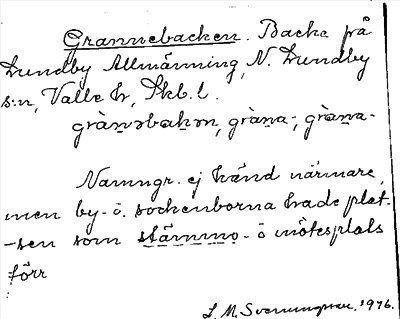 Grannebacken. Backe på
Lundby Allmänning, N. Lundby
s:n, Valle h, Skb. l.
grànəbakən, gràna-, gràna-
Namngr. ej känd närmare,
men by- o. sockenborna hade plat-
-sen som stämmo- o mötesplats
förr
L. M. Svenungsson. 1976.